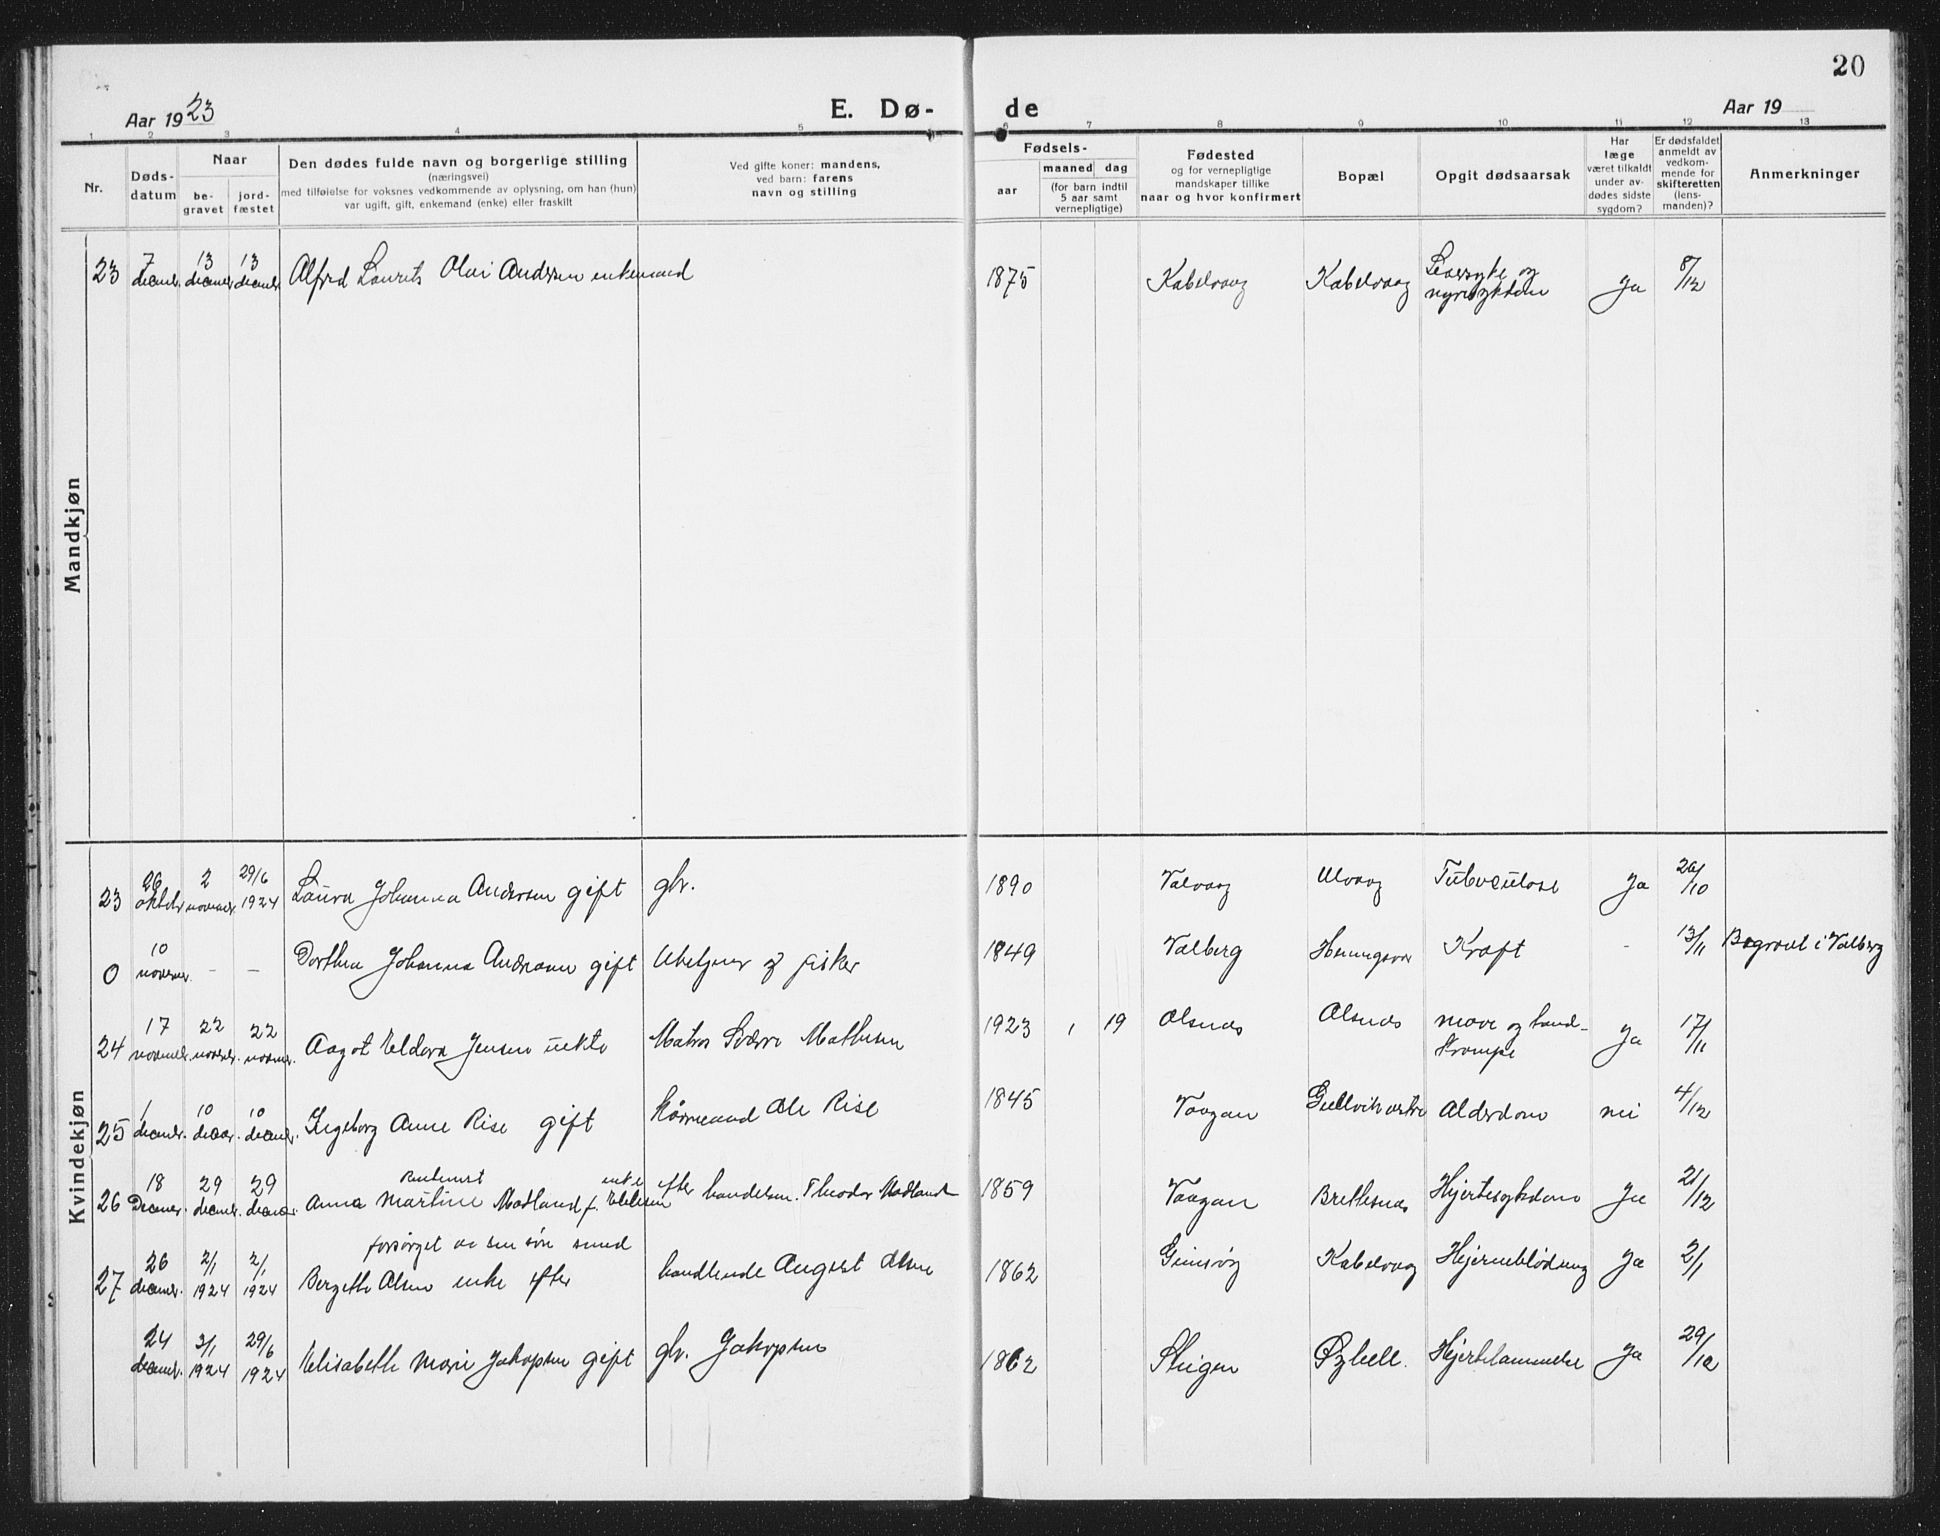 20
Aar 1923
E. Dø-
de
Aar 19
1 2 3 4 5 6 7 8 9 10 11 12 13
Nr.
Døds-
datum
Naar
be-
gravet
jord-
fæstet
Den dødes fulde navn og borgerlige stilling
(næringsvei)
med tilføielse for voksnes vedkommende av oplysning, om han (hun)
var ugift, gift, enkemand (enke) eller fraskilt
Ved gifte koner: mandens,
ved barn: farens
navn og stilling
Fødsels-
aar
maaned dag
(for barn indtil
5 aar samt
vernepligtige)
Fødested
og for vernepligtige
mandskaper tillike
naar og hvor konfirmert
Bopæl
Opgit dødsaarsak
Har
læge
været tilkaldt
under av-
dødes sidste
sygdom?
Er dødsfaldet
anmeldt av
vedkom-
mende for
skifteretten
(lens-
manden)?
Anmerkninger
Mandkjøn
23 7 13 13 Alfred Laurits Olai Andersen enkemand 1875 Kabelvaag Kabelvaag og
nyresykdom Ja 8/12
Kvindekjøn
23 26 2 29/6 1924 Laura Johanna Andersen gift gbr. 1890 Valvaag Ulvaag Tuberculose Ja 26/10
0 10 - - Dorthea Johanna gift fisker 1849 Valberg Kræft - 13/11 Begravet i Valberg
24 17 22 22 Aagot Eldora Jensen uekte Matros Sverre Mathisen 1923 1 19 Olsnes Olsnes mave og
Krampe Ja 17/11
25 1 10 10 Ingeborg Anne Rise gift Kårmand Ole Rise 1845 Vaagan Alderdom nei 4/12
26 18 29 29 Anna Martine Madland f. enke efter Theodor Madland 1859 Vaagan Brettesnes Hjertesykdom Ja 21/12
forsørget av sin søn smed
27 26 2/1 1924 2/1 1924 Bergette Olsen enke efter handlende August Olsen 1862 Gimsøy Kabelvaag Hjerneblødning Ja 2/1
24 3/1 1924 29/6 1924 Elisabeth Marie Jakopsen gift gbr. Jakopsen 1862 Steigen Hjertelammelse Ja 29/12